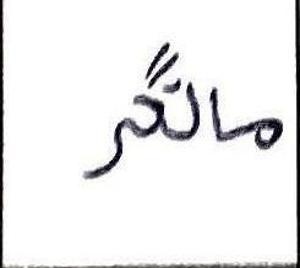 مانگر